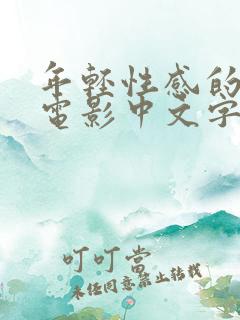 年轻性感的
电影中文字
叮叮当
未经同意禁止转载